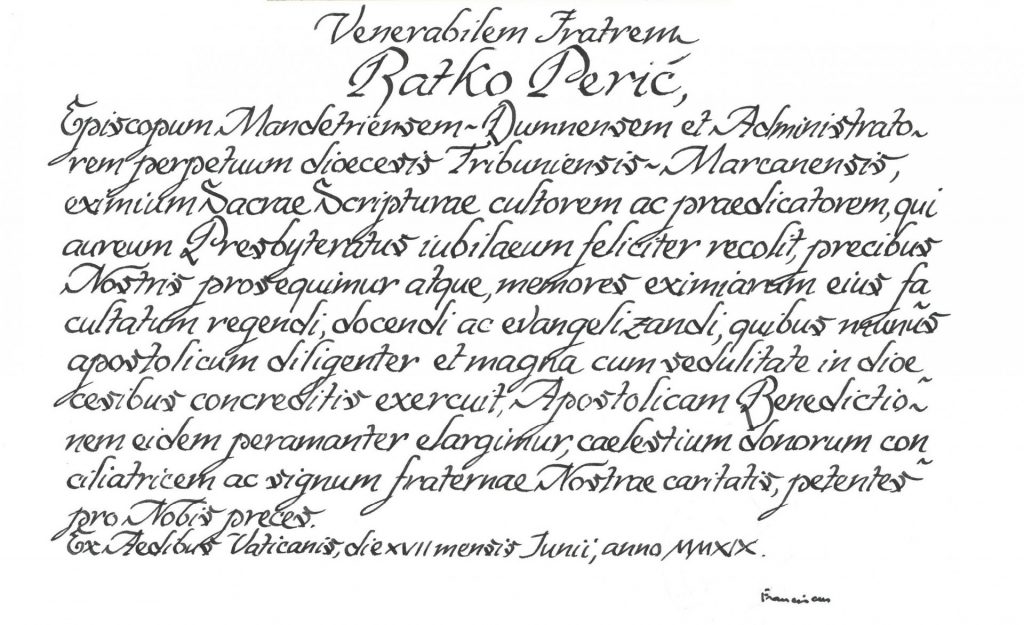 Venerabilem Fratrem
Ratko Perić,
Episcopum Mandetriensem-Dumnensem et Administrato-
rem perpetuum dioecesis Tribuniensis-Marcanensis,
eximium Sacrae Scripturae cultorem ac praedicatorem, qui
aureum Presbyteratus iubilaeum feliciter recolit, precibus
Nostris prosequimur atque, memores eximiarum eius fa
cultatum regendi, docendi ac evangelizandi, quibus munus
apostolicum diligenter et magna cum sedulitate in dioe
cesibus concreditis exercuit, Apostolicam Benedictio-
nem eidem peramanter elargimur, caelestium donorum con
ciliatricem ac signum fraternae Nostrae caritatis, petentes
pro Nobis preces.
Ex Aedibus Vaticanis, die XVII mensis Junii, anno MMXIX.
Franciscus